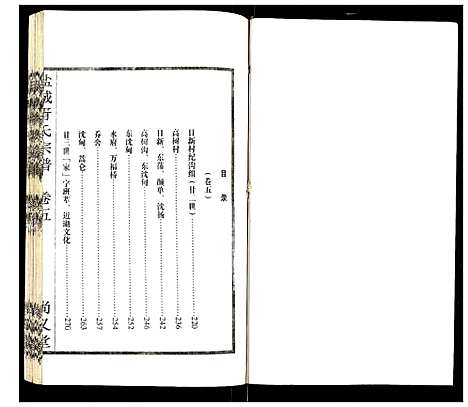 目录
（卷五）
日新村纪沟组（廿一世）……220
高树村……236
日新、东荡、颜单、沈杨……242
高树沟、东沈甸……246
东沈甸……252
水府、万福桥……254
乔舍……257
沈甸、蒿仑……263
廿三世「家」字班辈、近湖文化……270
盐城
氏宗谱 卷五
尚义堂